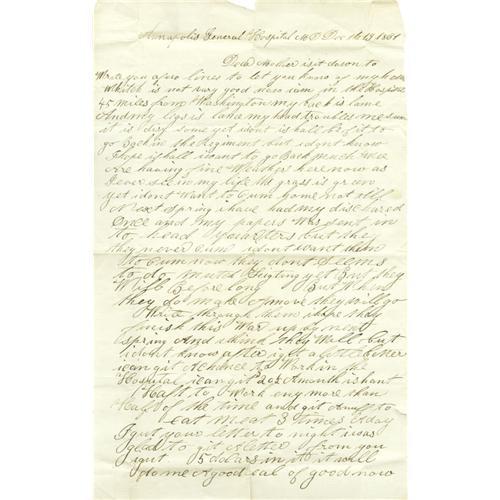 Annapolis General Hospital MD Dec the 18 1861
Dear Mother i sit down to
Write you a few lines to let you know of my helth
Which is not very good now i am in the Hospital
45 miles from Washington my back is lame
And my legs is lame my head troubles me sum
it is disy some yet i dont i shall be fit to
go Back in the Regiment but i dont know
I hope i shall i want to go Back much We
Are having fine Weather here now as
I ever see in my life the grass is green
yet i dont want to Cum home not till
Next Spring i have had my discharged
Once and my papers Was sent in
to head Quarters but the
they never Cum i dont want them
to Cum now they dont Seems
to do much Figting yet But they
Will Before long But When
they do make A move they will go
Write through them i hope they
finish this War up by next
spring And i think they Will but
i dont know after i get a little better
i can git A chance to Work in the
Hospital i can git 20$ A month i shant
Haft to Work eny more than
half of the time and git enuff to
eat meat 3 times A day
I got your letter to night i was
glad to git A letter from you
i got 5 dolars in it it will
do me A good eal of good now